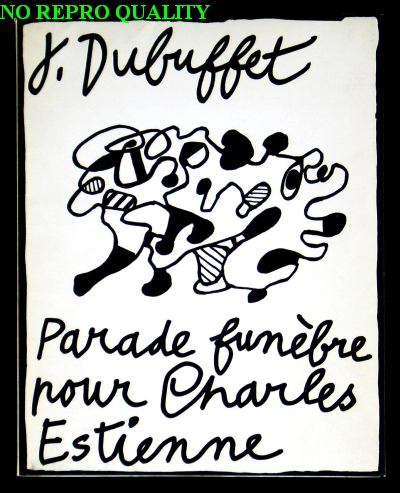 NO REPRO QUALITY
J. Dubuffet
Parade funèbre
pour Charles
Estienne